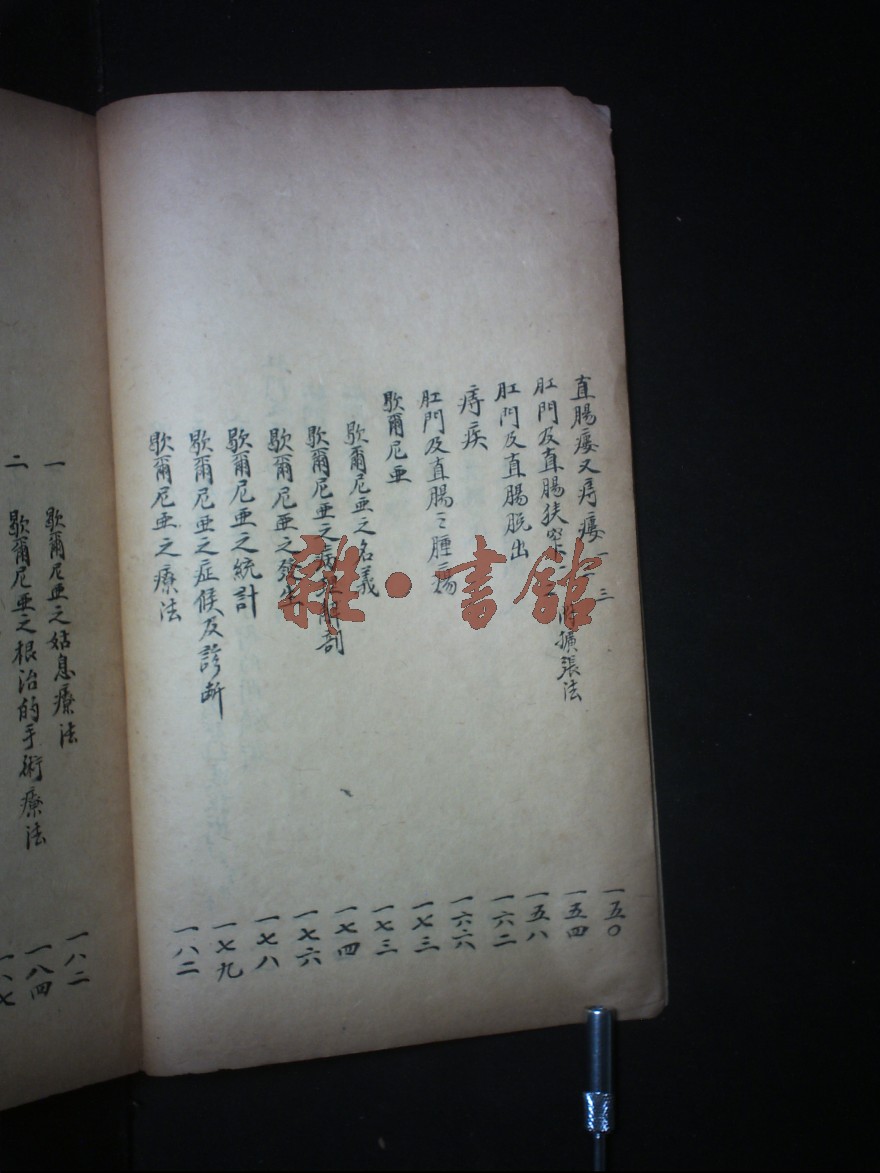 直腸瘻又痔瘻 一五〇
肛門及直腸狹窄 附擴張法 一五四
肛門及直腸脱出 一五八
痔疾 一六二
肛門及直腸之腫瘍 一六六
歇爾尼亜 一七三
歇爾尼亜之名義 一七三
歇爾尼亜之病理解剖 一七四
歇爾尼亜之發生 一七六
歇爾尼亜之統計 一七八
歇爾尼亜之症候及診断 一七九
歇爾尼亜之療法 一八二
一 歇爾尼亜之姑息療法 一八二
二 歇爾尼亜之根治的手術療法 一八四
一八七
雜·書館